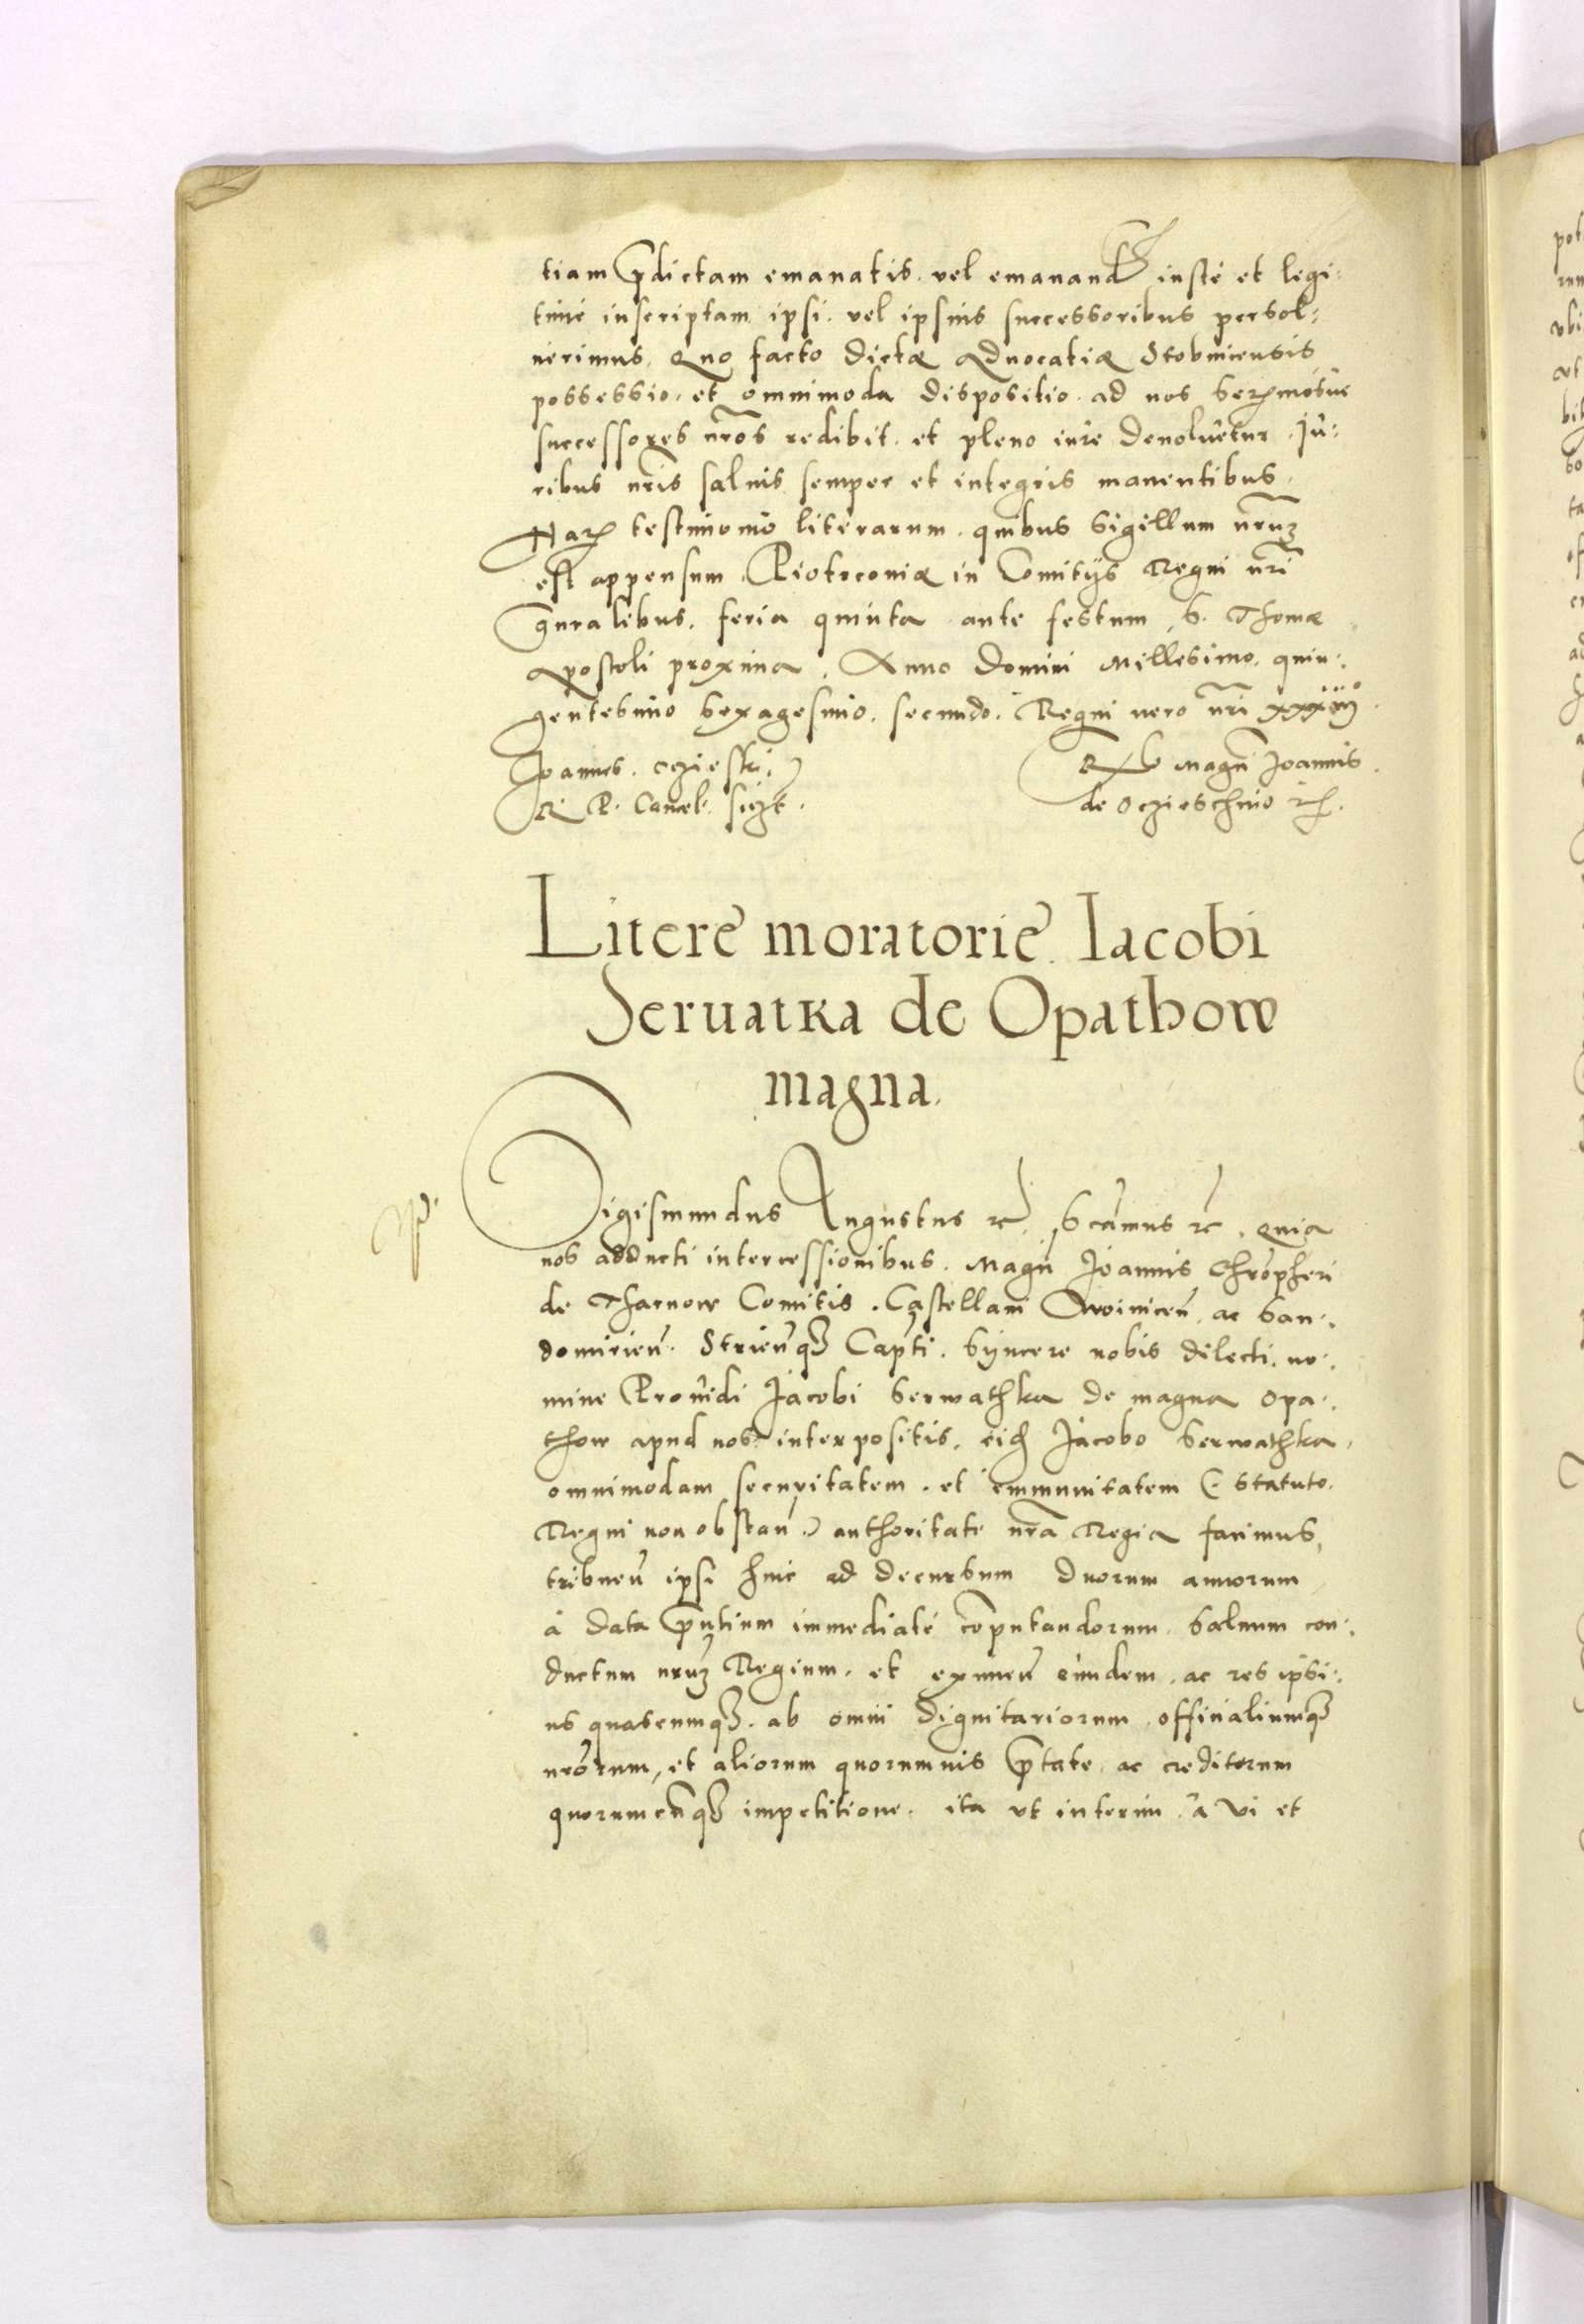 tiam p̃dictam emanatis. vel emanand iusté et legi:
timé inscriptam ipsi. vel ipsius successoribus persol:
uerimus. Quo facto dictæ Aduocatiæ Stobnicensis
possessio. et omnimoda dispositio. ad nos Serꝫmosue
successores nr̃os redibit. et pleno iure deuoluetur. Ju:
ribus nr̃is saluis semper et integris manentibus.
Harꝫ testimonio literarum. quibus Sigillum nr̃uꝫ
est appensum. Piotrcouiæ in Comitijs Regni nr̃i
gn̄ralibus. feria quinta ante festum S. Thomæ
Apostoli proxima. Anno Domini Millesimo. quin:
gentesimo Sexagesimo. secundo. Regni uero nr̃i xxxiij
Joannes. Oczieski.
R. P. Cancel. sszt.
R̃lo Magn̄ Joannis
de Oczieschino
Litere moratorie. Iacobi
Seruatka de Opathow
magna.
Sigismundus Augustus rc̃. Scãmus rc̃. Quia
nos adducti intercessionibus. Magn̄ Joannis Chrõpheri
de Tharnow Comitis. Castellani Woinicen̄. ac San:
domirien̄. Strien̄qꝫ Capti. Syncere nobis dilecti. no:
mine Prouidi Jacobi Serwathka de magna Opa:
thow apud nos interpositis. eid Jacobo Serwathka.
omnimodam securitatem. et emmunitatem (. Statuto.
Regni non obstan̄.) authoritate nr̃a Regia facimus,
tribuen̄ ipsi hinc ad decursum duorum annorum
à data p̃ntium immediaté cõputandorum. Saluum con:
ductum nr̃uꝫ Regium. et eximen̄ eundem. ac res ipsi:
us quascumqꝫ. ab omni dignitariorum. officialiumqꝫ
nr̃orum, et aliorum quorumuis p̃tate. ac creditorum
quorumcũqꝫ impetitione. ita vt interim. à vi et